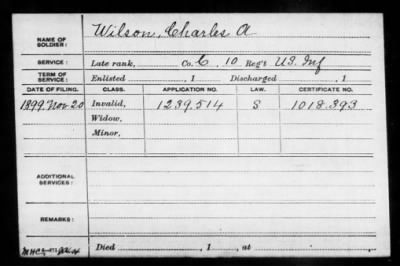 NAME OF SOLDIER: Wilson, Charles A
SERVICE: Late rank, Co. C, 10 Reg't US. Inf
TERM OF SERVICE: Enlisted , 1 Discharged , 1
DATE OF FILING. CLASS. APPLICATION NO. LAW. CERTIFICATE NO.
1899. Nov 20 Invalid, 1239.514 S 1018.393
Widow,
Minor,
ADDITIONAL SERVICES:
REMARKS:
Died , 1 , at